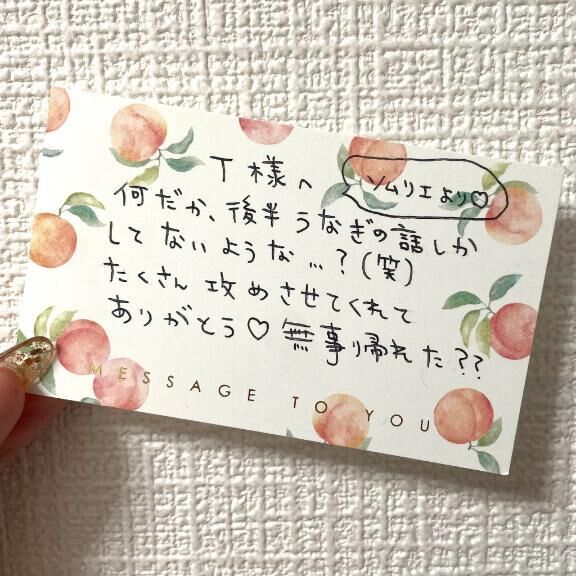 T様へ
ソムリエより♡
何だか、後半うなぎの話しか
してないような…?(笑)
たくさん攻めさせてくれて
ありがとう♡無事り帰れた??
MESSAGE TO YOU